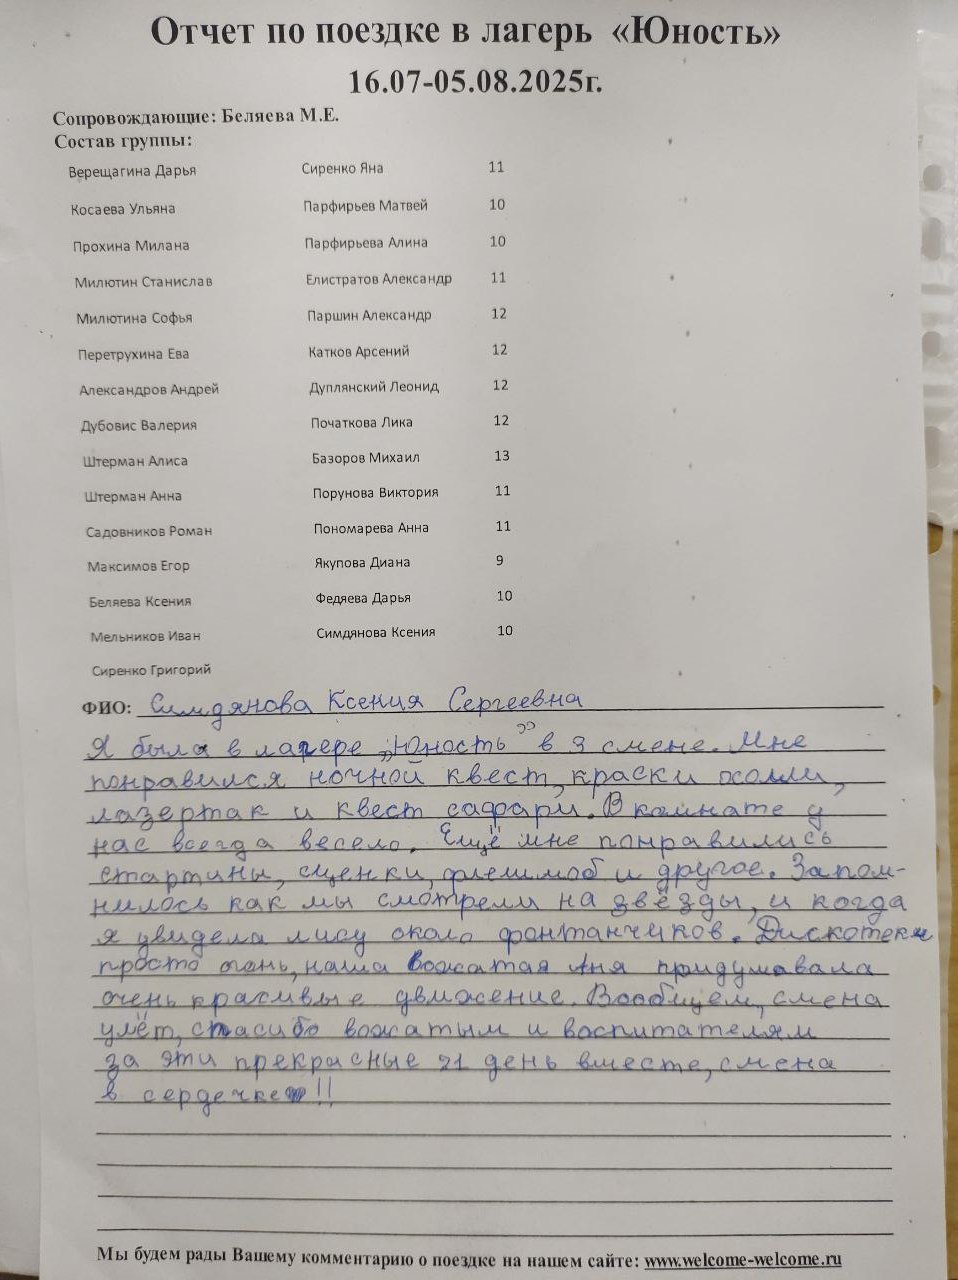 Отчет по поездке в лагерь «Юность»
16.07-05.08.2025г.
Сопровождающие: Беляева М.Е.
Состав группы:
Верещагина Дарья Сиренко Яна 11
Косаева Ульяна Парфирьев Матвей 10
Прохина Милана Парфирьева Алина 10
Милютин Станислав Елистратов Александр 11
Милютина Софья Паршин Александр 12
Перетрухина Ева Катков Арсений 12
Александров Андрей Дуплянский Леонид 12
Дубовис Валерия Початкова Лика 12
Штерман Алиса Базоров Михаил 13
Штерман Анна Порунова Виктория 11
Садовников Роман Пономарева Анна 11
Максимов Егор Якупова Диана 9
Беляева Ксения Федяева Дарья 10
Мельников Иван Симдянова Ксения 10
Сиренко Григорий
ФИО: Симдянова Ксения Сергеевна
Я была в лагере „Юность” в 3 смене. Мне
понравился ночной квест, краски холли,
лазертак и квест сафари. В комнате у
нас всегда весело. Ещё мне понравились
стартины, сценки, флешмоб и другое. Запом-
нилось как мы смотрели на звёзды, и когда
я увидела лису около фонтанчиков. Дискотеки
просто огонь, наша вожатая Аня придумавала
очень красивые движение. Вообщем, смена
улёт, спасибо вожатым и воспитателям
за эти прекрасные 21 день вместе, смена
в сердечке!!
Мы будем рады Вашему комментарию о поездке на нашем сайте: www.welcome-welcome.ru